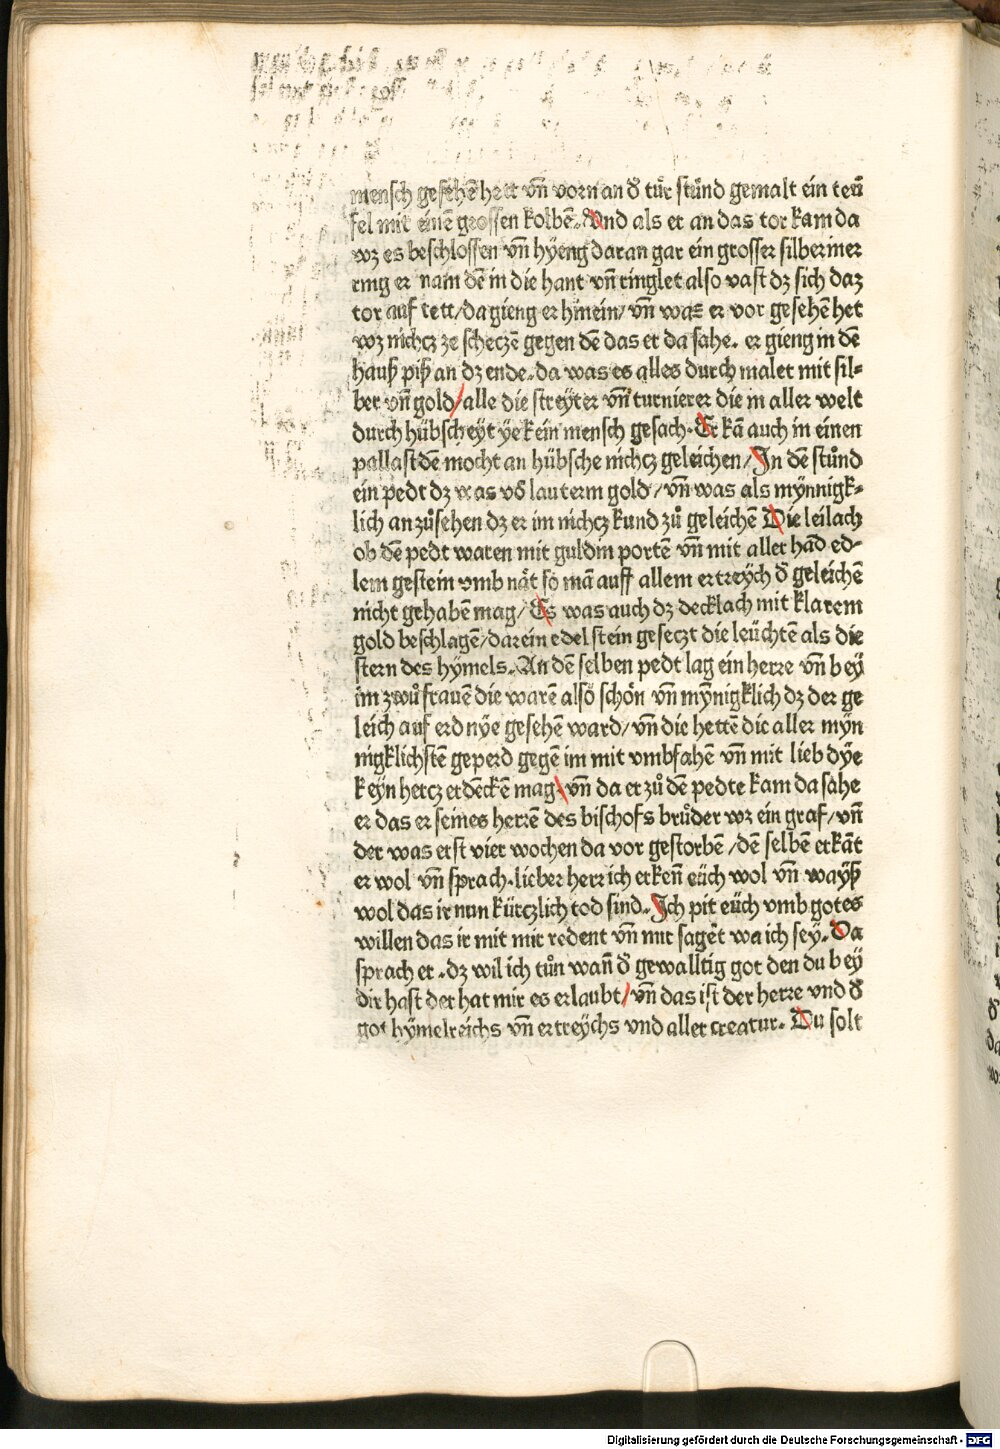 mensch gesehē hett vñ vorn an ð tür stůnd gemalt ein teü
fel mit einē grossen kolbē. Und als er an das tor kam da
wz es beschlossen vñ hyeng daran gar ein grosser silberiner
ring er nam dē in die hant vñ ringlet also vast dz sich daz
tor auf tett/da gieng er hinein/vñ was er vor gesehē het
wz nichcz ze scheczē gegen dē das er da sahe. er gieng in dē
hauß piß an dz ende. da was es alles durch malet mit sil⸗
ber vñ gold/alle die streÿter vñ turnierer die in aller welt
durch hübscheÿt ÿe kein mensch gesach. Er kā auch in einen
pallast dē mocht an hübsche nichcz geleichen/In dē stůnd
ein pedt dz was vō lauterm gold/vñ was als mÿnnigk⸗
lich an zůsehen dz er im nichcz kund zů geleichē Die leilach
ob dē pedt waren mit guldin portē vñ mit aller hād ed⸗
lem gestein vmb nät so mā auff allem ertreÿch ð geleichē
nicht gehabē mag/Es was auch dz decklach mit klarem
gold beschlagē/darein edel stein geseczt die leüchtē als die
stern des hÿmels. An dē selben pedt lag ein herre vñ beÿ
im zwů frauē die warē also schön vñ mÿnigklich dz der ge
leich auf erd nÿe gesehen ward/vñ die hettē die aller mÿn
nigklichstē geperd gegē im mit vmbfahē vñ mit lieb dÿe
keÿn hercz erdēckē mag/vñ da er zů dē pedte kam da sahe
er das er seines herrē des bischofs brůder wz ein graf/vñ
der was erst vier wochen da vor gestorbē/dē selbē erkāt
er wol vñ sprach. lieber herr ich erkeñ eüch wol vñ waÿß
wol das ir nun kürczlich tod sind. Ich pit eüch vmb gotes
willen das ir mit mir redent vñ mir sagēt wa ich seÿ. Da
sprach er. dz wil ich tůn wañ ð gewalltig got den du beÿ
dir hast der hat mir es erlaubt/vñ das ist der herre vnd ð
got hÿmelreichs vñ ertreÿchs vnd aller creatur. Du solt
Digitalisierung gefördert durch die Deutsche Forschungsgemeinschaft - DFG